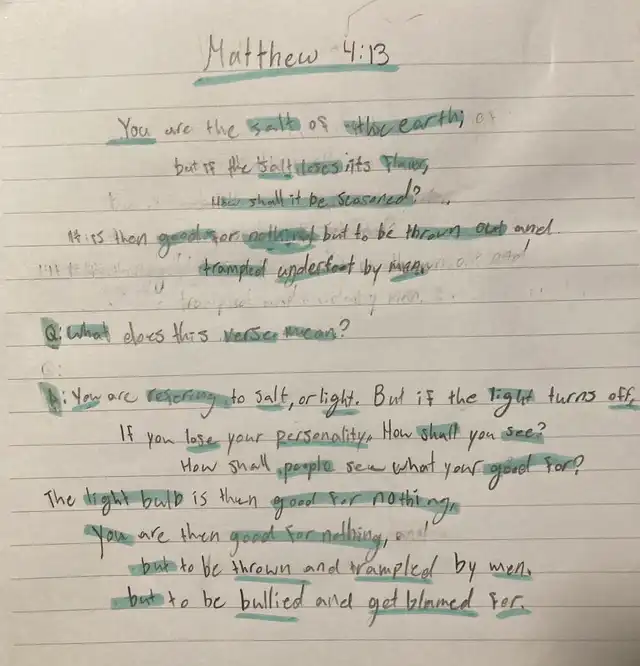 Matthew 4:13
You are the salt of the earth;
but if the salt loses its flavor,
How shall it be seasoned?
It is then good for nothing but to be thrown out and
trampled underfoot by men.
Q: What does this verse mean?
A: You are refering to salt, or light. But if the light turns off,
If you lose your personality, How shall you see?
How shall people see what your good for?
The light bulb is then good for nothing,
You are then good for nothing, and
but to be thrown and trampled by men.
but to be bullied and get blamed for.